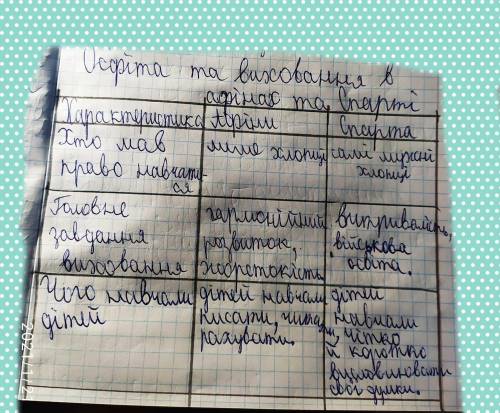 Освіта та виховання в
афінах та Спарті
Характеристика Афіни Спарта
Хто мав лише хлопці
право навчати- хлопці
ся
Головне гармонійний витривалість,
завдання розвиток, військова
виховання освіта.
Чого навчали дітей навчали дітей
дітей писати, читати, навчали
рахувати. чітко
й коротко
висловлювати
свої думки.